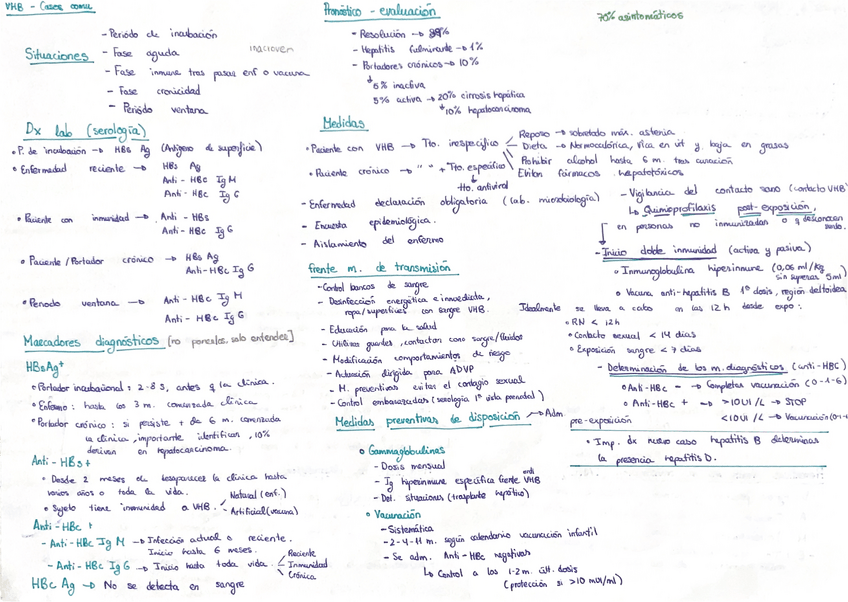 VHB - Casos comu
Situaciones
- Periodo de incubación
- Fase aguda
- Fase inmune tras pasar enf o vacuna
- Fase cronicidad
- Periodo ventana
Dx lab (serología)
• P. de incubación → HBs Ag (Antígeno de superficie)
• Enfermedad reciente → HBs Ag
Anti - HBc Ig M
Anti - HBc Ig G
• Paciente con inmunidad → Anti - HBs
Anti - HBc Ig G
• Paciente / Portador crónico → HBs Ag
Anti-HBc Ig G
• Periodo ventana → Anti - HBc Ig M
Anti - HBc Ig G
Marcadores diagnósticos [no ponerlos, solo entender]
HBsAg+
• Portador incubacional: 2-8 S, antes q la clínica.
• Enfermo: hasta los 3 m. comenzada clínica
• Portador crónico: si persiste + de 6 m. comenzada
la clínica, importante identificar, 10%
derivan en hepatocarcinoma.
Anti - HBs +
• Desde 2 meses de desaparecer la clínica hasta
varios años o toda la vida.
• Sujeto tiene inmunidad a VHB.
Natural (enf.)
Artificial (vacuna)
Anti - HBc +
- Anti - HBc Ig M → Infección actual o reciente.
Inicio hasta 6 meses.
- Anti - HBc Ig G → Inicio hasta toda vida
Reciente
Inmunidad
Crónica
HBc Ag → No se detecta en sangre
Pronóstico - evaluación
- Resolución → 89%
- Hepatitis fulminante → 1%
- Portadores crónicos → 10%
5% inactiva
5% activa → 20% cirrosis hepática
10% hepatocarcinoma
70% asintomáticos
Medidas
• Paciente con VHB → Tto. inespecífico
Reposo → sobretodo máx. astenia
Dieta → Normocalórica, rica en vit y baja en grasas
Prohibir alcohol hasta 6 m. tras curación
Evitar fármacos hepatotóxicos
• Paciente crónico → " " + Tto. específico
tto. antiviral
- Enfermedad declaración obligatoria (lab. microbiología)
- Encuesta epidemiológica.
- Aislamiento del enfermo
frente m. de transmisión
- Control bancos de sangre
- Desinfección energética e inmediata,
ropa/superficies con sangre VHB.
- Educación para la salud
- Utilizar guantes, contacto con sangre/fluidos
- Modificación comportamientos de riesgo
- Actuación dirigida para ADVP
- M. preventivas evitar el contagio sexual
- Control embarazadas (serología 1ª visita prenatal)
Medidas preventivas de disposición → Adm. pre-exposición
• Gammaglobulinas
- Dosis mensual
- Ig hiperinmune específica frente VHB
- Det. situaciones (trasplante hepático)
• Vacunación
- Sistemática
- 2-4-11 m. según calendario vacunación infantil
- Se adm. Anti-HBc negativos
↳ Control a los 1-2 m. últ. dosis
(protección si >10 mUI/ml)
- Vigilancia del contacto sano (contacto VHB)
↳ Quimioprofilaxis post-exposición,
en personas no inmunizadas o q desconozcan
- Inicio doble inmunidad (activa y pasiva)
• Inmunoglobulina hiperinmune (0,06 ml/Kg
sin superar 5ml)
• Vacuna anti-hepatitis B 1ª dosis, región deltoidea
Idealmente se lleva a cabo en las 12 h desde expo:
• RN < 12h
• Contacto sexual < 14 días
• Exposición sangre < 7 días
- Determinación de los m. diagnósticos (anti-HBC)
• Anti-HBc - → Completar vacunación (0-1-6)
• Anti-HBc + → >10UI/L → STOP
<10UI/L → Vacunación (0-1-
• Imp. dx nuevo caso hepatitis B determinas
la presencia hepatitis D.